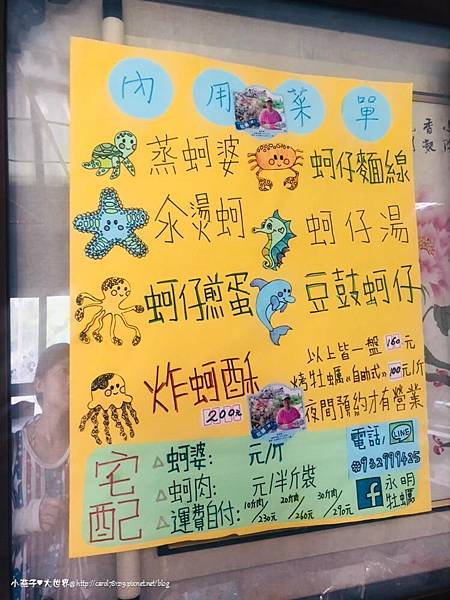 內用菜單
蒸蚵婆
蚵仔麵線
汆燙蚵
蚵仔湯
蚵仔煎蛋
豆鼓蚵仔
炸蚵酥
200元
以上皆一盤160元
烤牡蠣《自助式》100元/斤
夜間預約才有營業
宅配
蚵婆: 元/斤
蚵肉: 元/半斤裝
運費自付: 10斤內/230元 20斤內/260元 30斤內/290元
電話/LINE
0932999425
永明牡蠣
小燕子♥大世界@http://carol78129.pixnet.net/blog